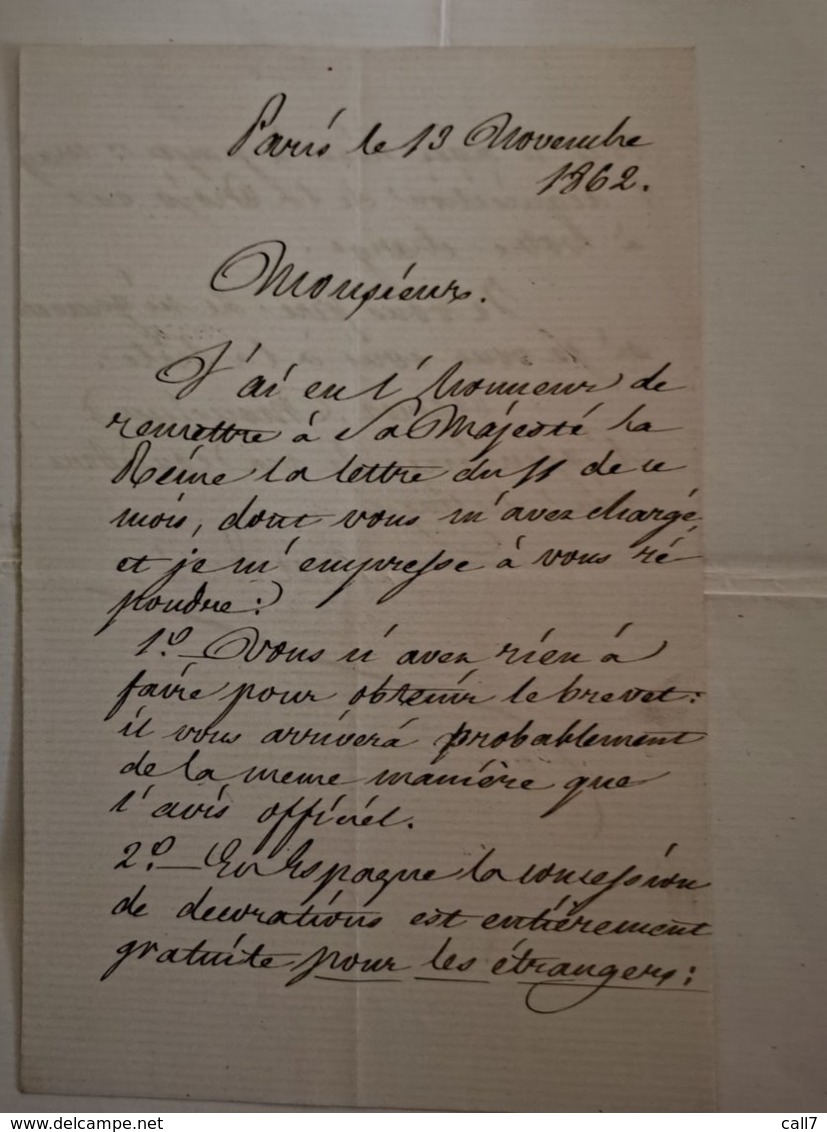 Paris le 13 Novembre
1862.
Monsieur.
J'ai eu l'honneur de
remettre à Sa Majesté la
Reine la lettre du 11 de ce
mois, dont vous m'avez chargé,
et je m'empresse à vous ré
pondre:
1º.— Vous n'avez rien à
faire pour obtenir le brevet:
il vous arrivera probablement
de la meme manière que
l'avis officiel.
2º.— En Espagne la concession
de decorations est entièrement
gratuite pour les étrangers:
delcampe.net
call7